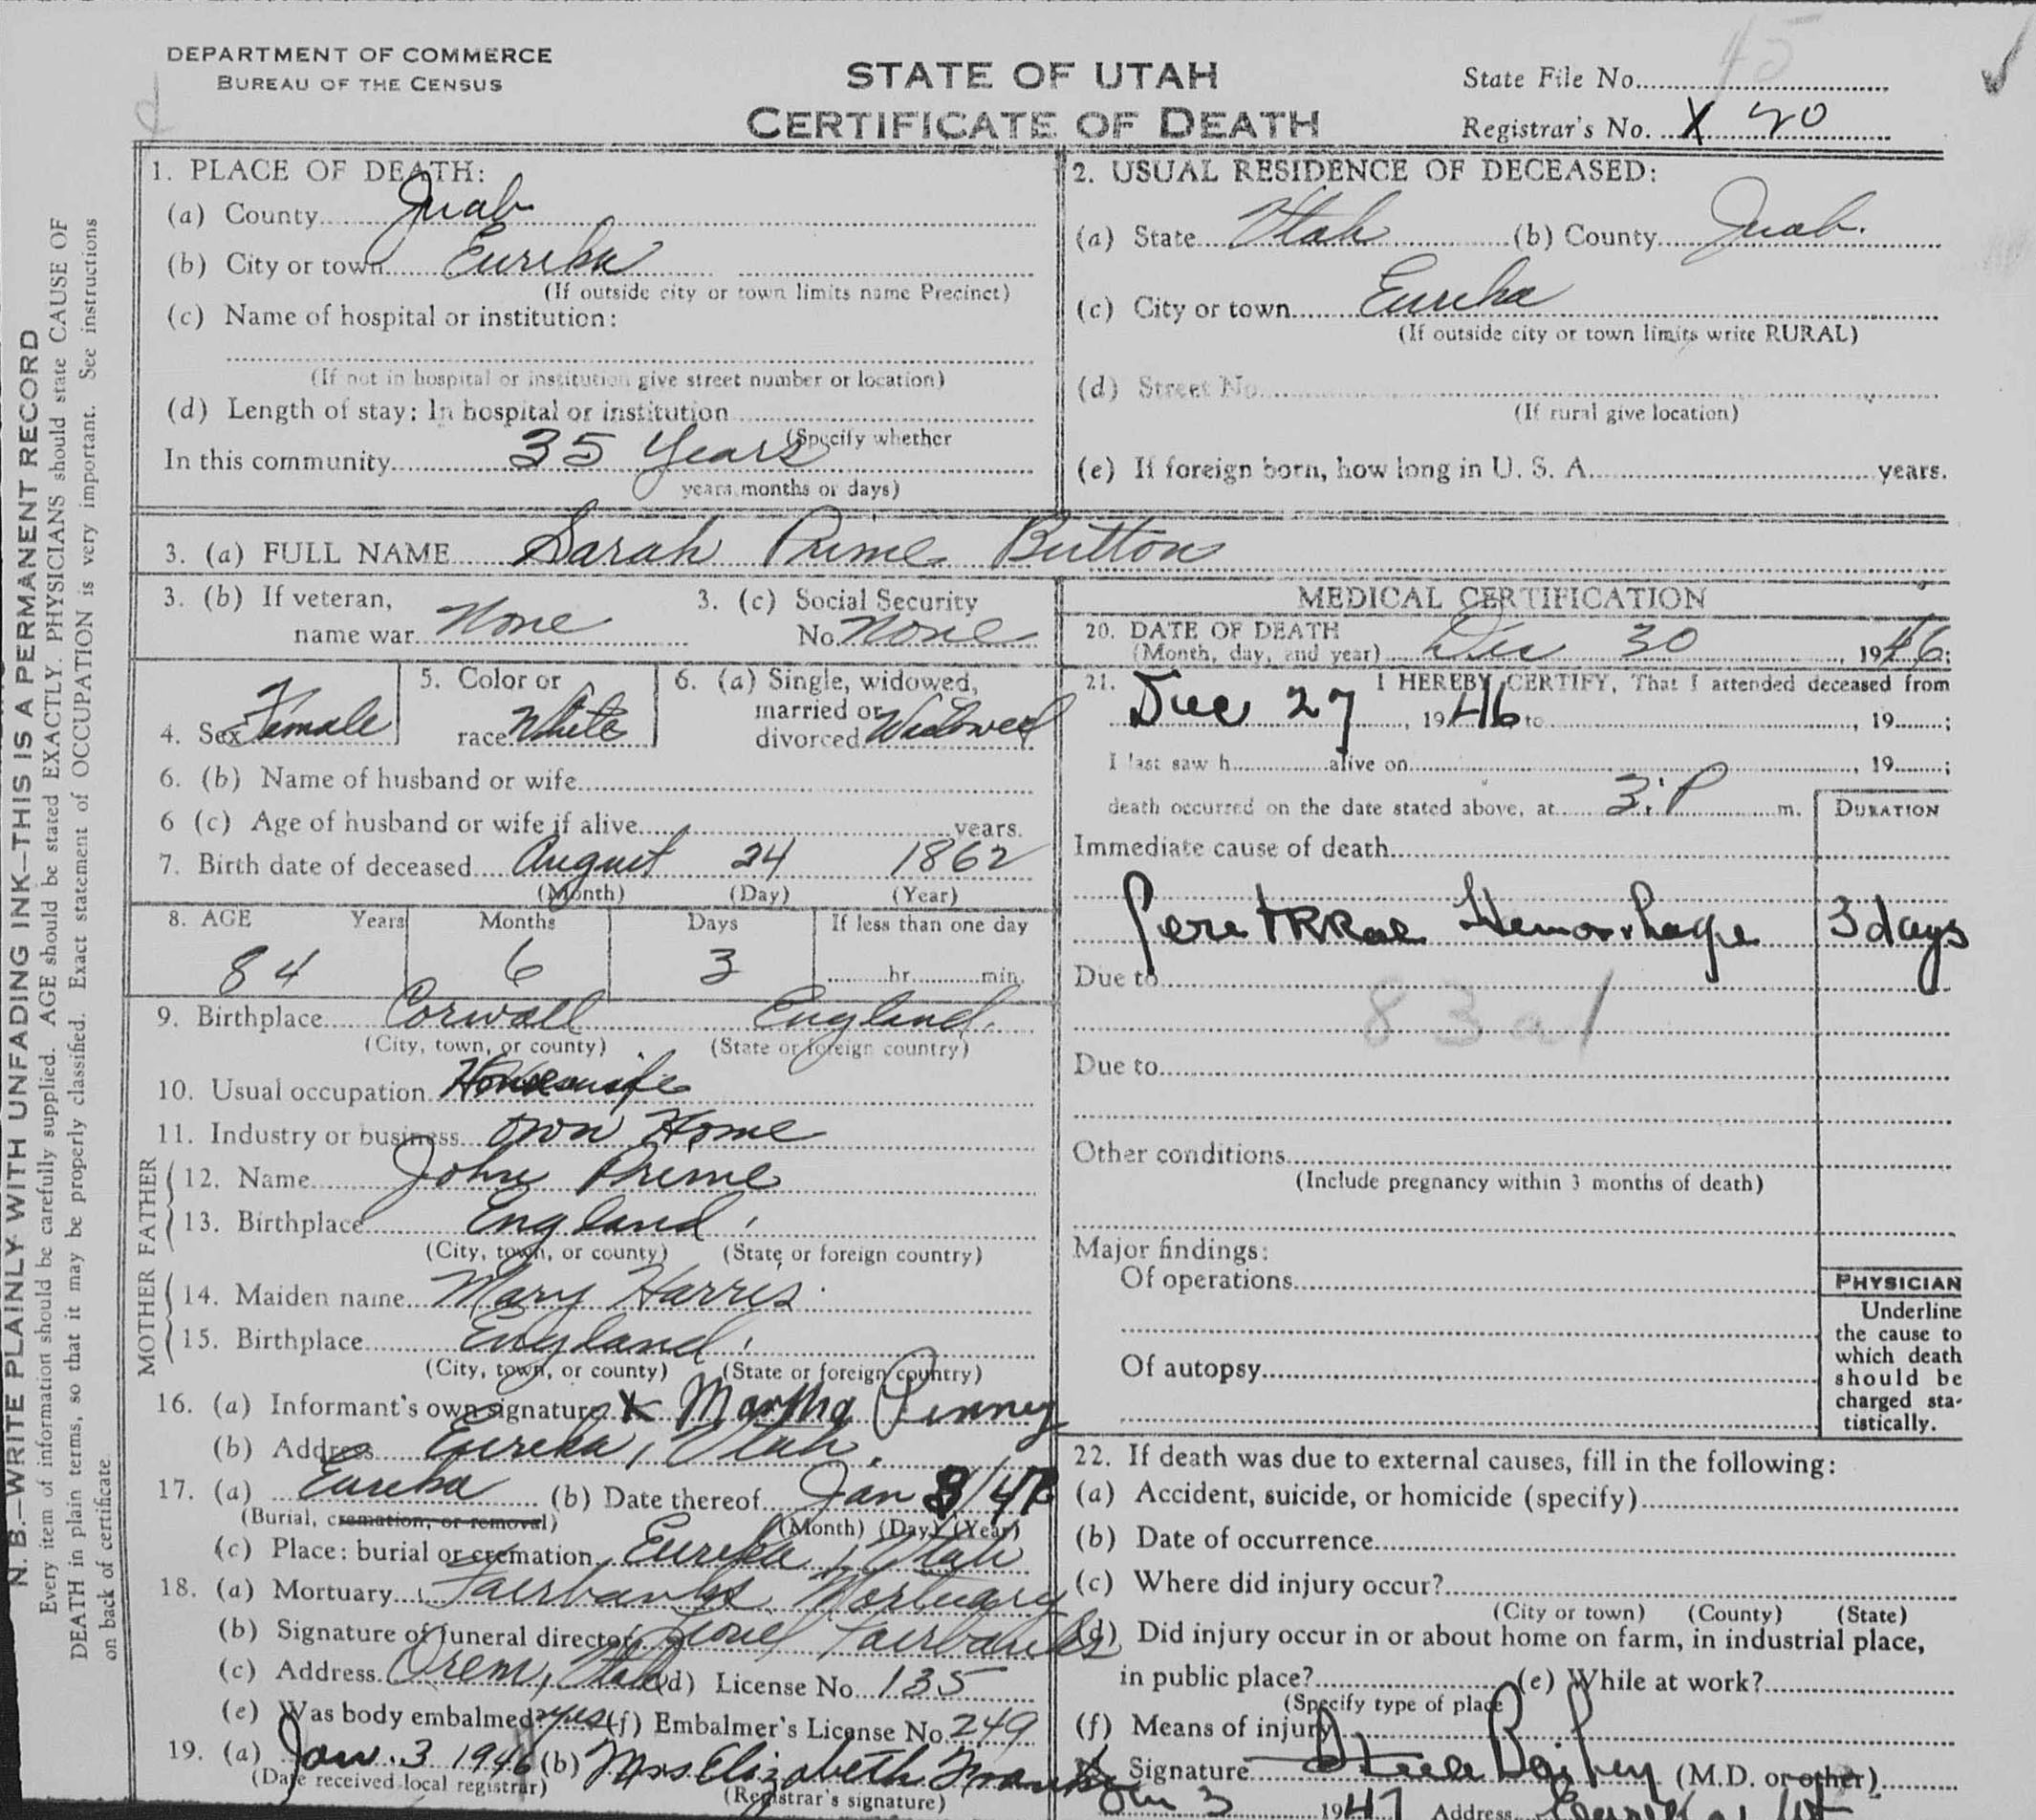 DEPARTMENT OF COMMERCE
BUREAU OF THE CENSUS
STATE OF UTAH
CERTIFICATE OF DEATH
State File No. 45
Registrar's No. X 20
N. B.—WRITE PLAINLY WITH UNFADING INK—THIS IS A PERMANENT RECORD
Every item of information should be carefully supplied. AGE should be stated EXACTLY. PHYSICIANS should state CAUSE OF
DEATH in plain terms, so that it may be properly classified. Exact statement of OCCUPATION is very important. See instructions
on back of certificate.
1. PLACE OF DEATH:
(a) County Juab
(b) City or town Eureka
(If outside city or town limits name Precinct)
(c) Name of hospital or institution:
(If not in hospital or institution give street number or location)
(d) Length of stay: In hospital or institution
(Specify whether
In this community 35 Years
years, months or days)
2. USUAL RESIDENCE OF DECEASED:
(a) State Utah (b) County Juab.
(c) City or town Eureka
(If outside city or town limits write RURAL)
(d) Street No.
(If rural give location)
(e) If foreign born, how long in U. S. A. years.
3. (a) FULL NAME Sarah Prime Button
3. (b) If veteran,
name war None
3. (c) Social Security
No. None
4. Sex Female
5. Color or
race White
6. (a) Single, widowed,
married or
divorced Widowed
6. (b) Name of husband or wife
6 (c) Age of husband or wife if alive years.
7. Birth date of deceased August 24 1862
(Month) (Day) (Year)
8. AGE Years Months Days If less than one day
84 6 3 hr. min.
9. Birthplace Corwall England.
(City, town, or county) (State or foreign country)
10. Usual occupation Housewife
11. Industry or business own Home
FATHER
12. Name John Prime
13. Birthplace England
(City, town, or county) (State or foreign country)
MOTHER
14. Maiden name Mary Harris
15. Birthplace England
(City, town, or county) (State or foreign country)
16. (a) Informant's own signature X Martha Pinney
(b) Address Eureka, Utah.
17. (a) Eureka (b) Date thereof Jan 3/47
(Burial, cremation, or removal) (Month) (Day) (Year)
(c) Place: burial or cremation Eureka, Utah
18. (a) Mortuary Fairbanks Mortuary
(b) Signature of funeral director Lionel Fairbanks
(c) Address Orem, Utah (d) License No. 135
(e) Was body embalmed? yes (f) Embalmer's License No. 249
19. (a) Jan. 3 1946 (b) Mrs Elizabeth
(Date received local registrar) (Registrar's signature)
MEDICAL CERTIFICATION
20. DATE OF DEATH
(Month, day, and year) Dec 30, 1946;
21. I HEREBY CERTIFY, That I attended deceased from
Dec 27, 1946 to , 19 ;
I last saw h alive on , 19 ;
death occurred on the date stated above, at 3:P m.
DURATION
Immediate cause of death
Hemorrhage 3 days
Due to
83a1
Due to
Other conditions
(Include pregnancy within 3 months of death)
Major findings:
Of operations
Of autopsy
PHYSICIAN
Underline
the cause to
which death
should be
charged sta-
tistically.
22. If death was due to external causes, fill in the following:
(a) Accident, suicide, or homicide (specify)
(b) Date of occurrence
(c) Where did injury occur?
(City or town) (County) (State)
(d) Did injury occur in or about home on farm, in industrial place,
in public place? (e) While at work?
(Specify type of place
(f) Means of injury
Signature Steele Bailey (M.D. or other)
Jan 3 1947 Address Eureka, Ut